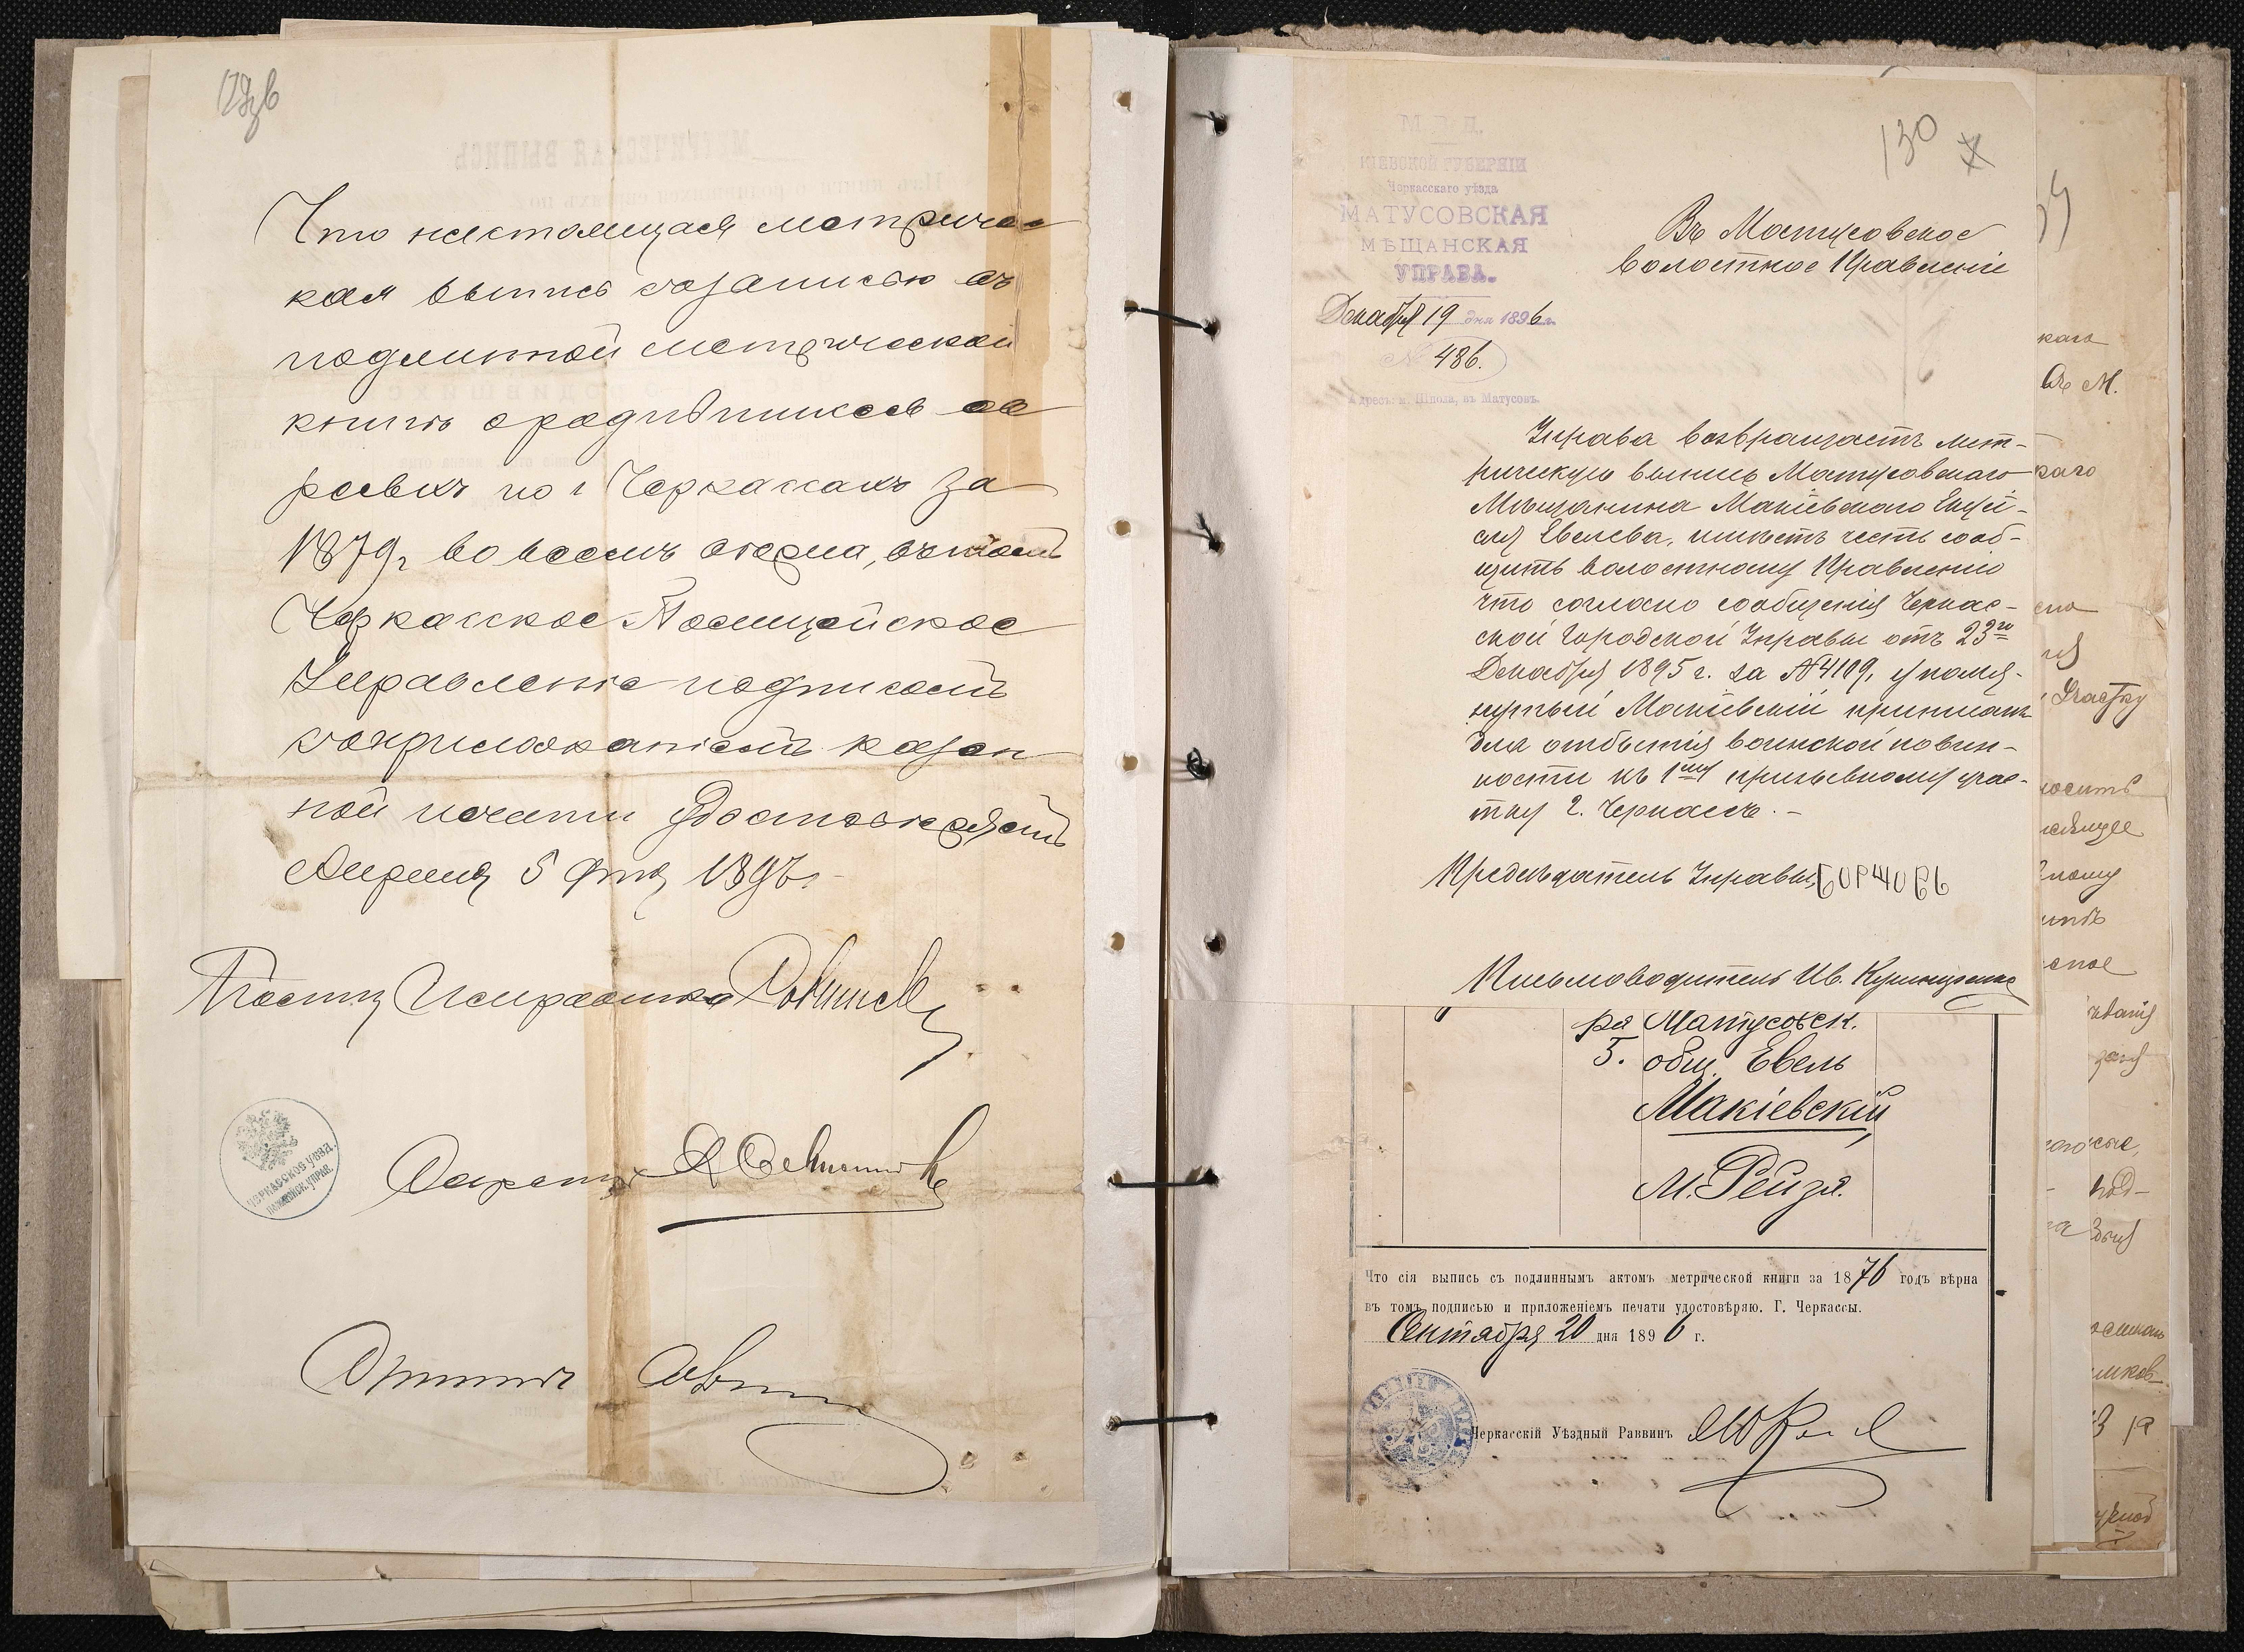 Что настоящая метричес
кая выпись созаписью въ
подлинной метрической
книге ородившихся ев
реевъ по г Черкассамъ за
1879г во всемъ верна, въ томъ
Черкасское Полицейское
Управление подписомъ
соприложениемъ казен
ной печати удостоверяетъ
Апреля 5 дня 1897г
Исправника
ЧЕРКАССКОЕ УѢЗД.
ПОЛИЦЕЙСК. УПРАВ.
Секретарь
130
КІЕВСКОЙ ГУБЕРНІИ
Черкасскаго уѣзда
МАТУСОВСКАЯ
МѢЩАНСКАЯ
УПРАВА.
Декабря 19 дня 1896 г.
№ 486.
Адресъ: п. Шпола, въ Матусовъ.
Въ Матусовское
волостное Правленіе
Управа возвращаетъ мет-
рическую выпись Матусовскаго
Мѣщанина Макіевскаго
Евелева, имѣетъ честь сооб-
щить волостному Правленію
что согласно сообщенія Черкас-
ской Городской Управы отъ 23го
Декабря 1895 г. за №4109, упомя-
нутый Макіевскій приписанъ
для отбытія воинской повин-
ности къ 1му призывному учас-
тку г. Черкассъ. -
Предсѣдатель Управы Боржовъ
Письмоводитель Ив.
ря Матусовск.
5. общ. Евель
Макіевскій
М. Рейзя.
Что сія выпись съ подлиннымъ актомъ метрической книги за 1876 годъ вѣрна
въ томъ подписью и приложеніемъ печати удостовѣряю. Г. Черкассы.
Сентября 20 дня 1896 г.
Черкасскій Уѣздный Раввинъ
каго
въ М.
каго
Участку